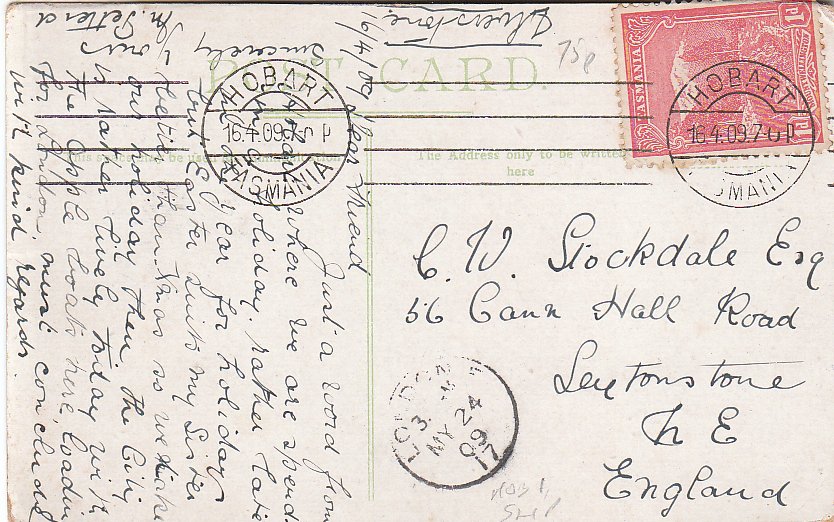 POST CARD.
This space may be used for communication
The Address only to be written
here
Ulverstone.
16/4/09 Dear Friend
Just a word from
Hobart where we are spend-
ing our holiday, rather late
in the year for holidays
but Easter suits my Sister
better than Xmas so we take
our holiday then, the City
is rather lively today with
the apple boats here, loading
for London, must conclude
with kind regards
Yours
sincerely
M. Pellend
75p
TASMANIA
1D
1D
HOBART
16.4.09.7-0 P
TASMANIA
HOBART
16.4.09.7-0 P
TASMANIA
C. W. Stockdale Esq
56 Cann Hall Road
Leytonstone
N E
England
LONDON N.E
3
MY 24
09
17